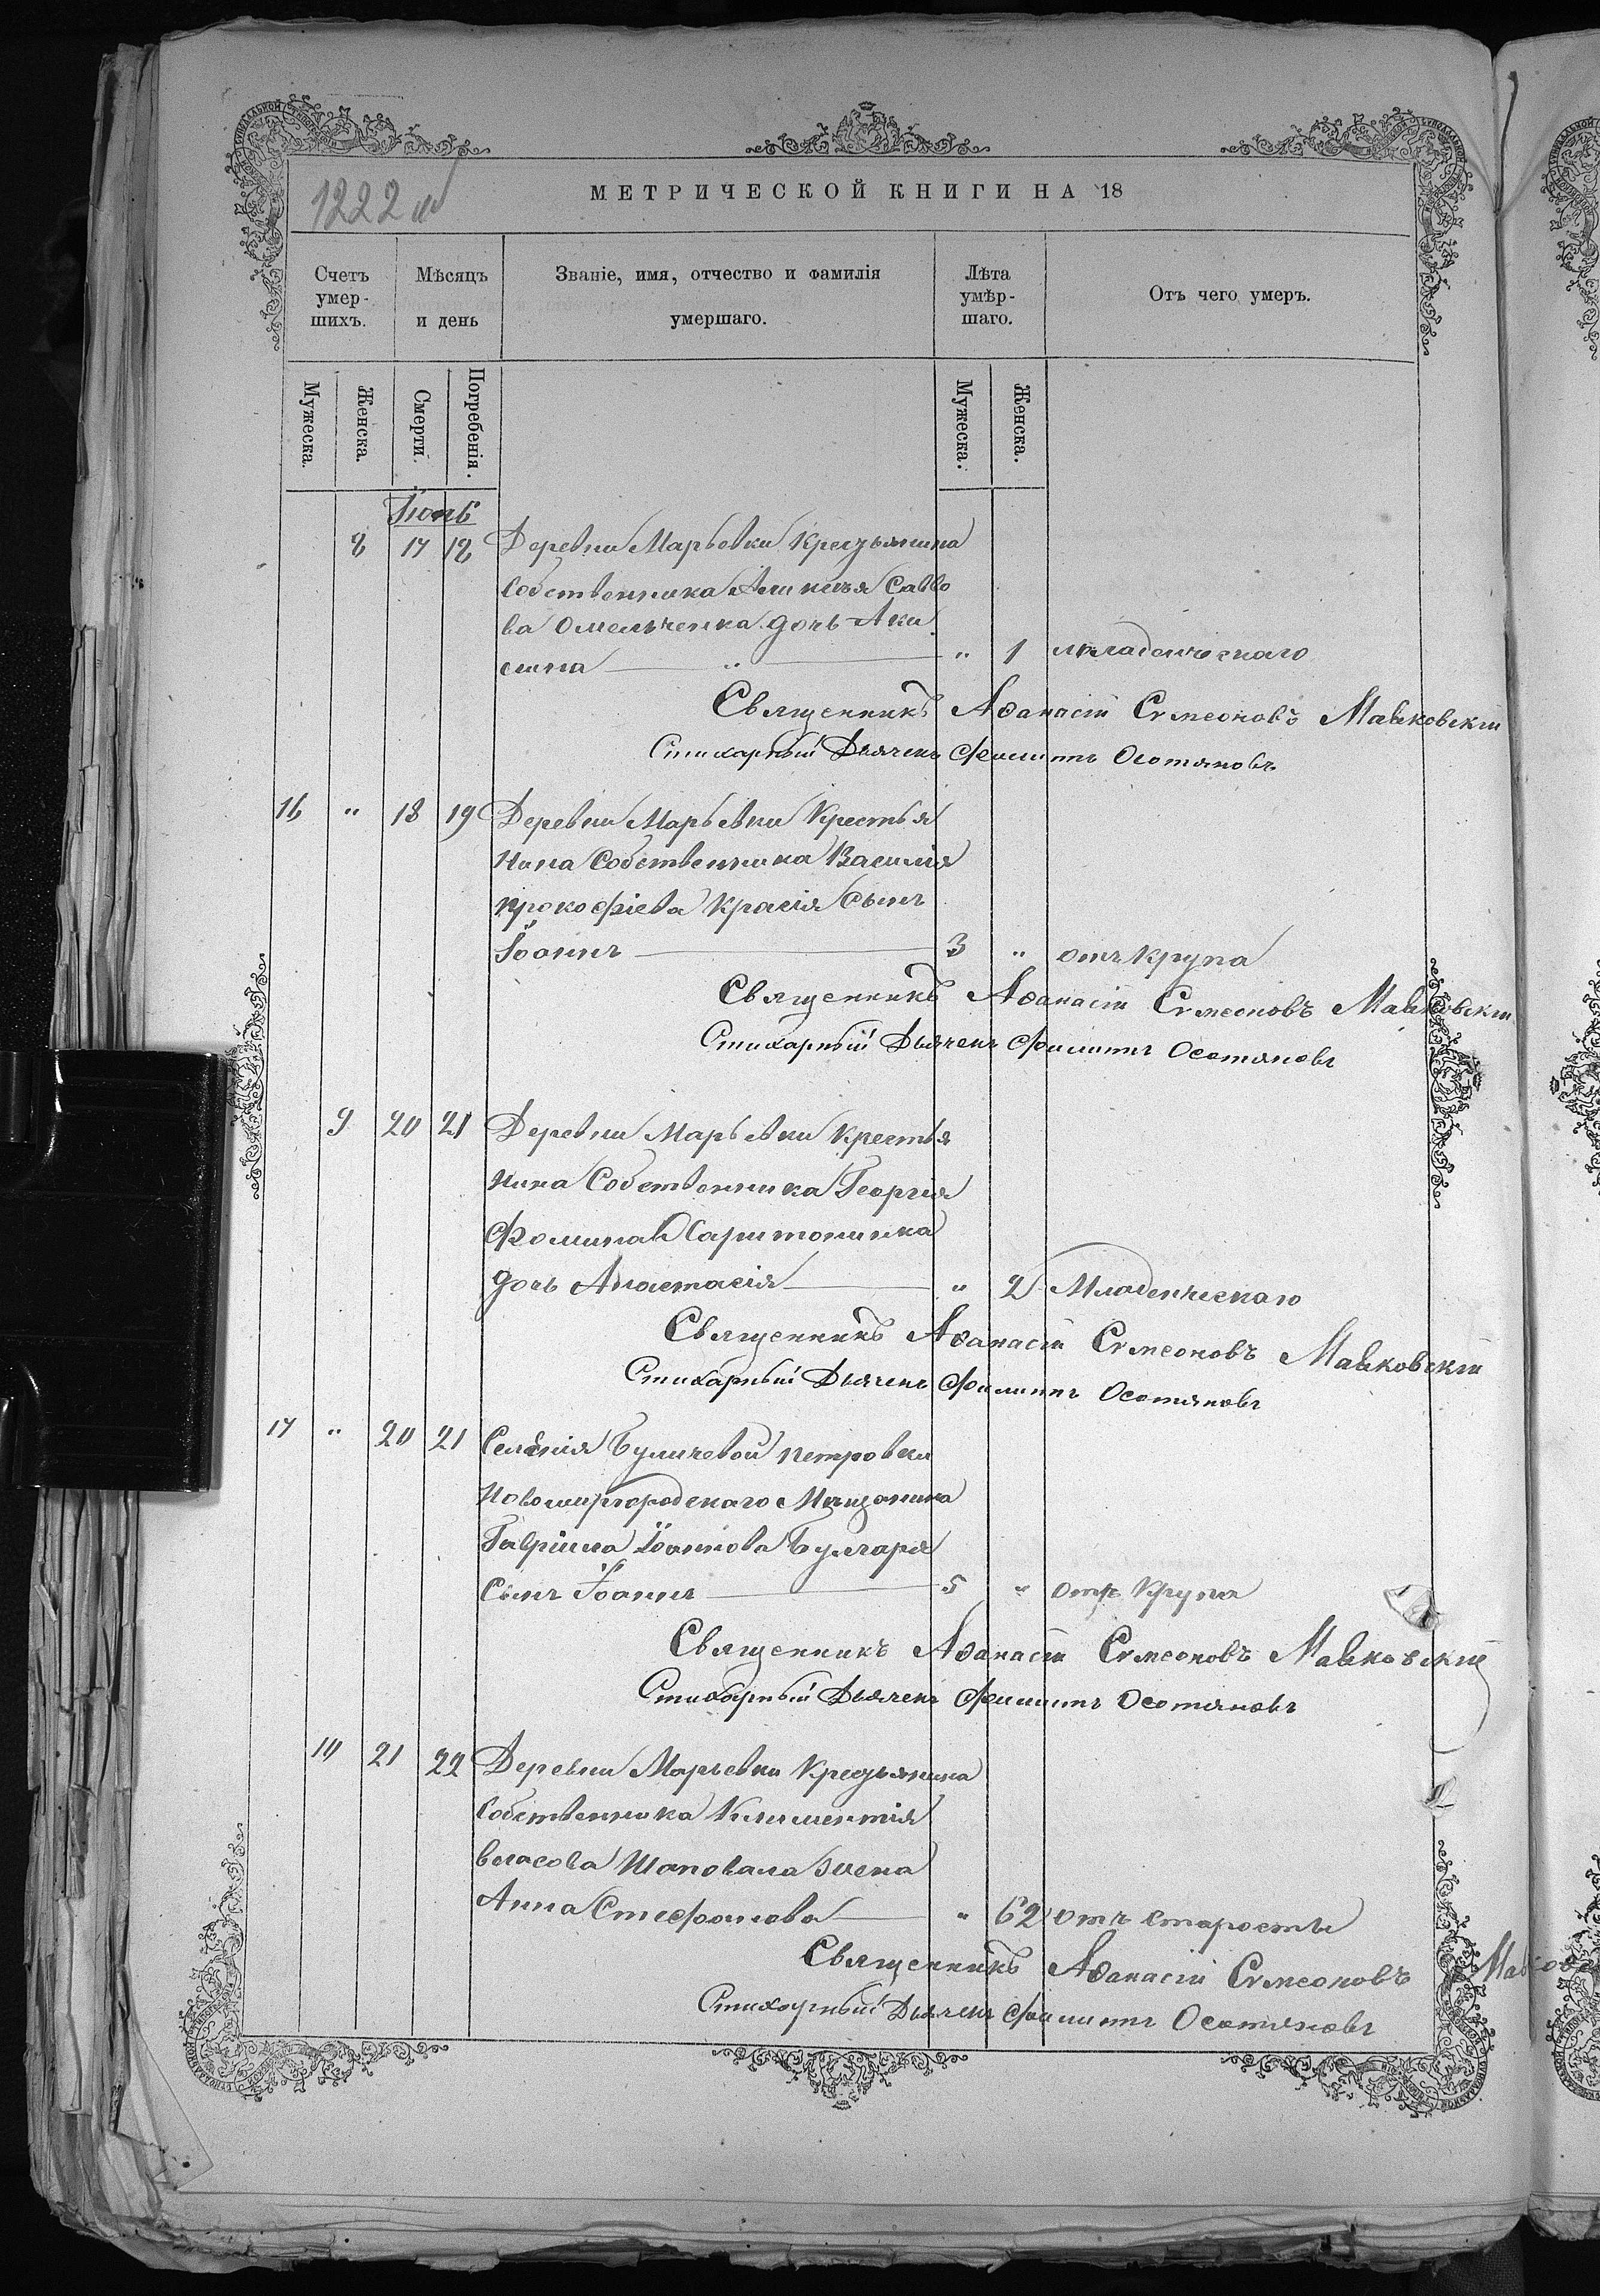 МЕТРИЧЕСКОЙ КНИГИ НА 18
1222
Счетъ умер-шихъ.
Мѣсяцъ и день
Званіе, имя, отчество и фамилія умершаго.
Лѣта умѣр-шаго.
Отъ чего умеръ.
Мужеска.
Женска.
Смерти.
Погребенія.
Мужеска.
Женска.
8 17 18 Деревни Марьевки Крестьянина
Собственника Савво
ва Омельченка дочь Аки
лина " " 1 младенческаго
Священникъ Аѳанасій Сѵмеоновъ Маяковскій
Стихарный Дьячекъ Филиппъ Осотяновъ
16 " 18 19 Деревни Марьевки Крестья
нина Собственника Василія
Прокофіева Красія Сынъ
Іоаннъ 3 " отъ Крупа
Священникъ Аѳанасій Сѵмеоновъ Маяковскій
Стихарный Дьячекъ Филиппъ Осотяновъ
9 20 21 Деревни Марьевки Крестья
нина Собственника Георгія
Фомина Харитонинка
дочь Анастасія " 2 Младенческаго
Священникъ Аѳанасій Сѵмеоновъ Маяковскій
Стихарный Дьячекъ Филиппъ Осотяновъ
17 " 20 21 Селенія Буличевой Петровки
Новомиргородскаго Мѣщанина
Гавріила Іоаннова Булгаря
Сынъ Іоаннъ 5 " отъ Крупа
Священникъ Аѳанасій Сѵмеоновъ Маяковскій
Стихарный Дьячекъ Филиппъ Осотяновъ
10 21 22 Деревни Марьевки Крестьянина
Собственника Климентія
Власова Шаповала жена
Анна Стефанова " 62 отъ старости
Священникъ Аѳанасій Сѵмеоновъ
Стихарный Дьячекъ Филиппъ Осотяновъ